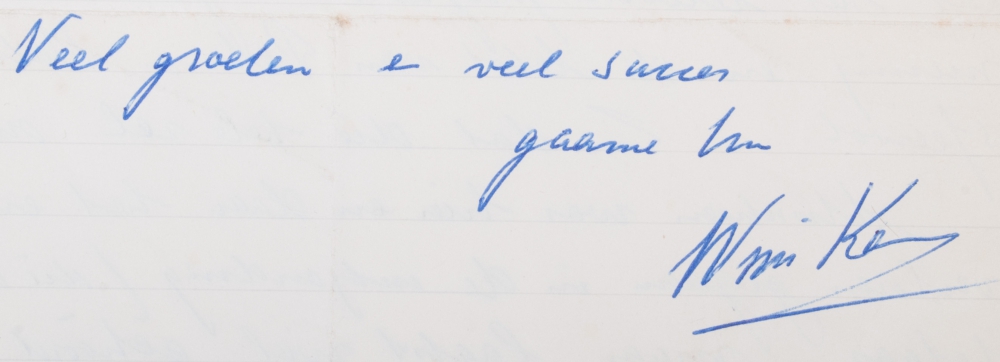 Veel groeten e veel succes
gaarne Uw
Wim Kan